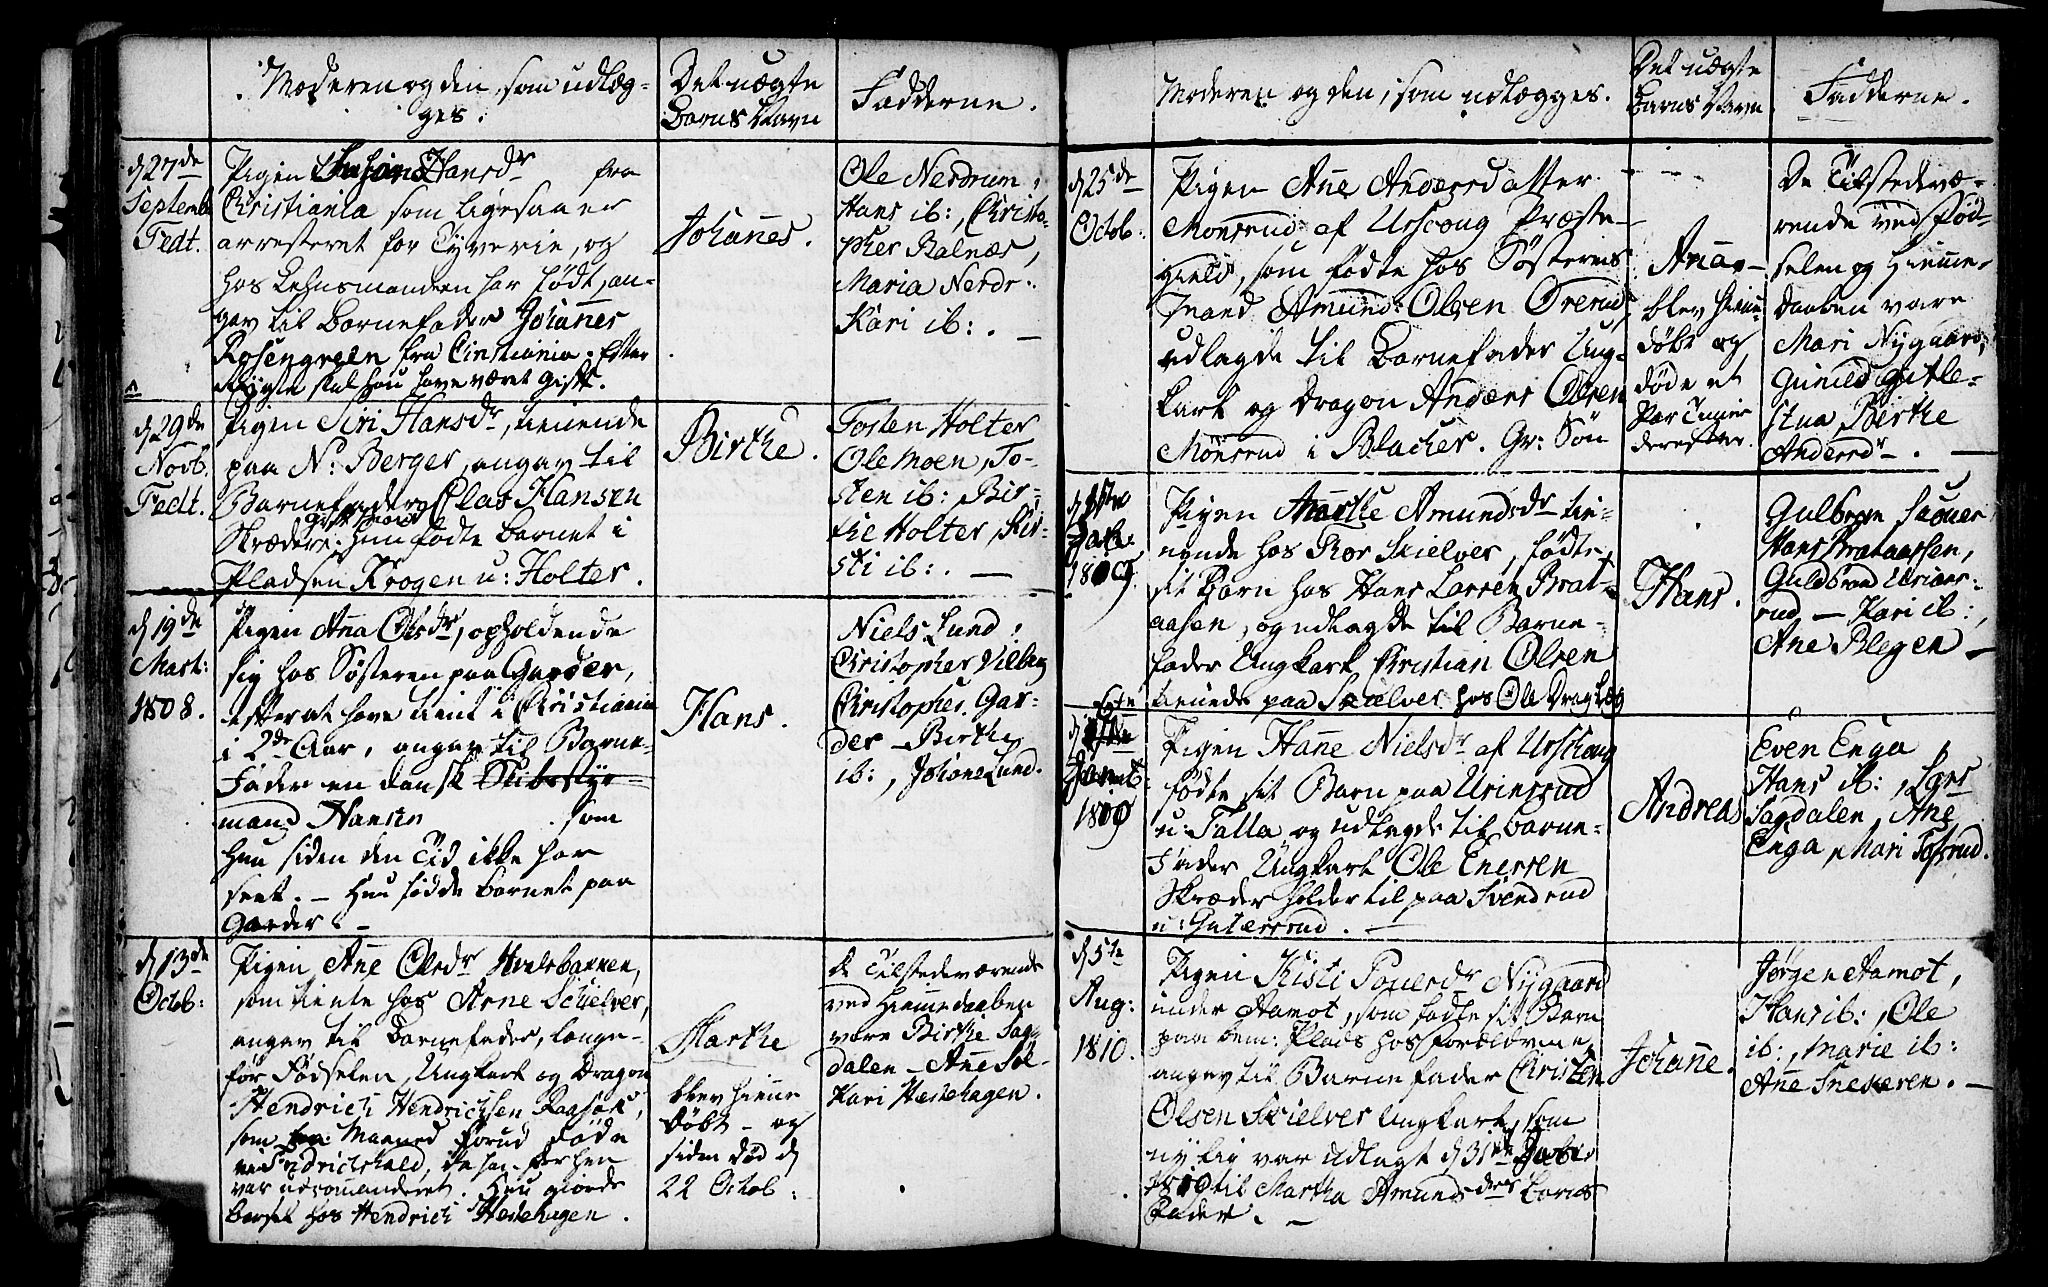 Moderen og den, som udlæg-
ges.
Det uægte
Barns Navn
Fadderne.
d 27de
Septemb
Fedt.
Pigen Hansdr fra
Christiania som ligesaa er
arresteret for Tyverie, og
hos Lehnsmanden har født, an-
gav til Barnefader Johannes
Rosengreen fra Christiania. Efter
Rygte skal hun have været gift.
Johannes.
Ole Nerdrum,
Hans ib:, Christo-
pher Balnæs,
Maria Nerdr:
Kari ib:.
d 29de
Novb.
Fedt.
Pigen Siri Hansdr, tienende
paa N: Berger, angav til
Barnefader Clas Hansen
gift Mand
Skræder. Hun fødte Barnet i
Pladsen Krogen u: Holter.
Birthe.
Tosten Holter
Ole Moen, To-
sten ib:, Bir-
the Holter, Kir-
sti ib:.
d 19de
Mart:
1808.
Pigen Ana Olsdr, opholdende
sig hos Søsteren paa Garder,
efter at have tient i Christiania
i 2de Aar, angav til Barne-
Fader en dansk
mand Hansen som
hun siden den Tid ikke har
seet. – Hun fødde Barnet paa
Garder. –
Hans.
Niels Lund,
Christopher Vilberg
Christopher Gar-
der – Birthe
ib:, Johane Lund.
d 13de
Octob:
Pigen Ane Olsdr Hvalsbakken,
som tiente hos Arne Schielver,
angav til Barnefader, længe-
før Fødselen, Ungkarl og Dragon
Hendrich Hendrichsen
som Maaned forud døde
ved Fridrichshald, da han før hen
var udcommanderet. Hun giorde
Barsel hos Hendrich Hestehagen.
Marthe
blev hieme
Døbt – og
siden død d
22 Octob:
De Tilstedeværende
ved Hiemedaaben
vare Birthe Sag-
dalen – Ane
Kari Hestehagen.
Moderen og den, som udlægges.
Det uægte
Barns Navn
Fadderne.
d 25de
Octob:
Pigen Ane Andersdatter
Monsrud af Urschoug Præste-
gield, som fødte hos Søsterens
Mand Amund Olsen Ørerud,
udlagde til Barnefader Ung-
karl og Dragon Anders Olsen
Mønsrud i Blacher. Gr: Søn
Ana –
blev hieme-
døbt og
døde et
Par Timer
derefter.
De Tilstedevæ-
rende ved Fød-
selen og Hieme-
daaben vare
Mari Nygaard,
Gunild Gutle-
stua, Birthe
Andersdr.
1809.
Pigen Marthe Amundsdr tie-
nende hos Roer Skielver, fødte
sit Barn hos Hans Larsen Brat-
aasen, og udlagde til Barne-
fader Ungkarl Christian Olsen
tienende paa Skielver hos Ole
Hans.
Gulbran
Hans Brataassen,
Guldbrand
rud – Kari ib:,
Ane Blegen –
1809
Pigen Hane Nielsdr af Urschoug
fødte sit Barn paa Urinsrud
u: Talla og udlagde til Barne-
Fader Ungkarl Ole Enersen
Skræder holder til paa Svendrud
u: Gutersrud.
Andreas
Even Enga,
Hans ib:, Lars
Sagdalen, Ane
Enga, Mari Tosrud.
d 5te
Aug:
1810.
Pigen Kisti Poversdr Nygaard
under Aamot, som fødte sit Barn
paa bem: Plads hos Forældrene,
angav til Barnefader Christen
Olsen Skielver Ungkarl, som
nylig var udlagt d 31te
til Martha Amundsdrs Barns
Fader. –
Johane.
Jørgen Aamot,
Hans ib:, Ole
ib:, Marie ib:
Ane Snekeren. –